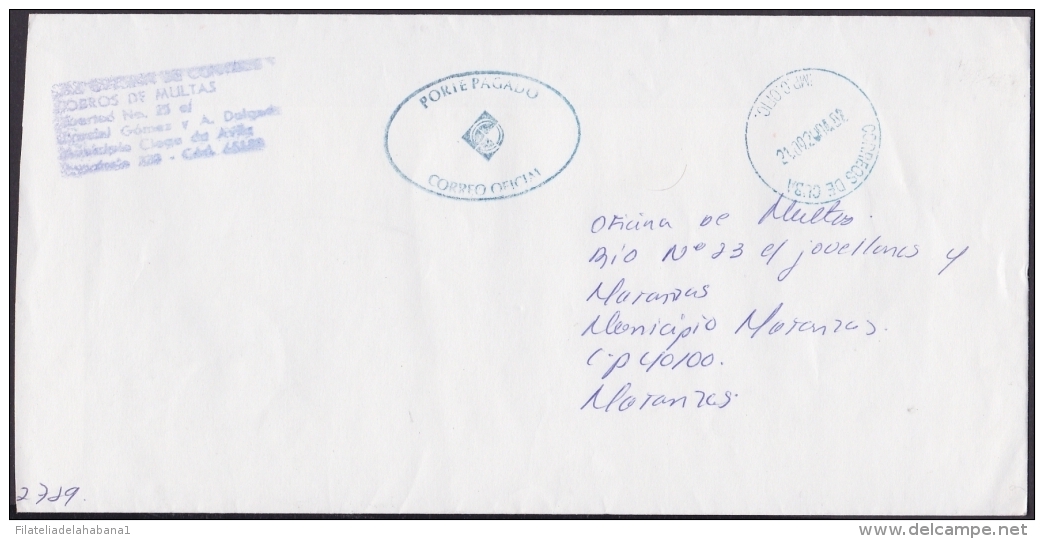 COBROS DE MULTAS
Libertad No. 25 e/
Marcial Gómez y A. Delgado
Municipio Ciego de Avila
PORTE PAGADO
CORREO OFICIAL
CORREOS DE CUBA
Oficina de Multas.
Rio Nº 23 e/ jovellanos y
Matanzas
Municipio Matanzas.
C-P 40100.
Matanzas.
2789.
Filateliadelahabana1
delcampe.net